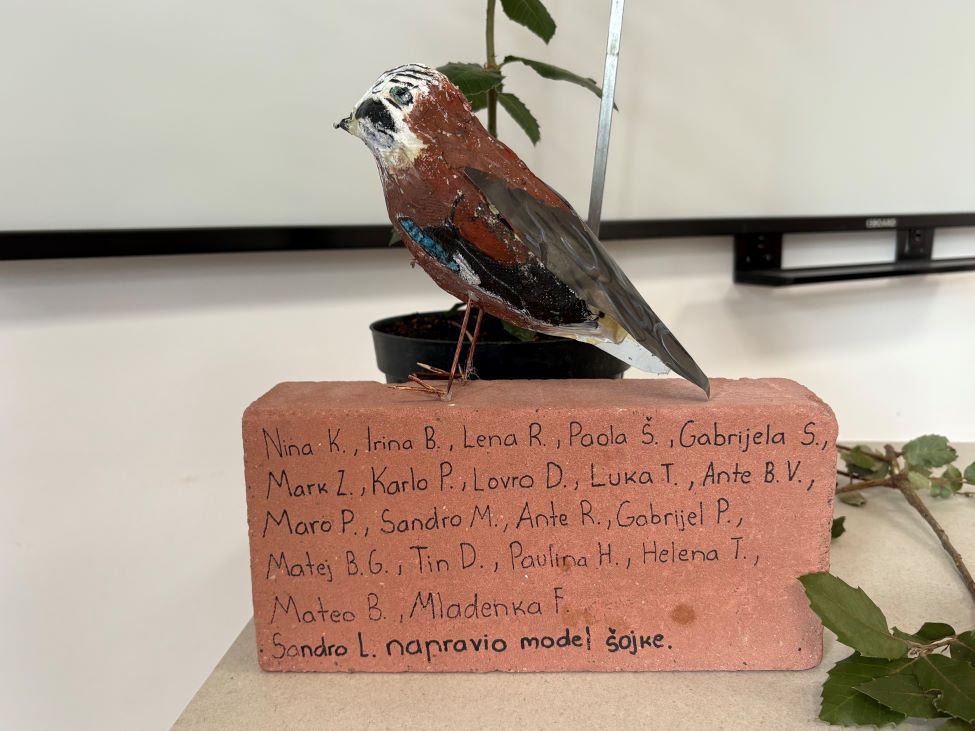 EBOARD
Nina K., Irina B., Lena R., Paola Š., Gabrijela S.,
Mark Z., Karlo P., Lovro D., Luka T., Ante B.V.,
Maro P., Sandro M., Ante R., Gabrijel P.,
Matej B.G., Tin D., Paulina H., Helena T.,
Mateo B., Mladenka F.
Sandro L. napravio model šojke.